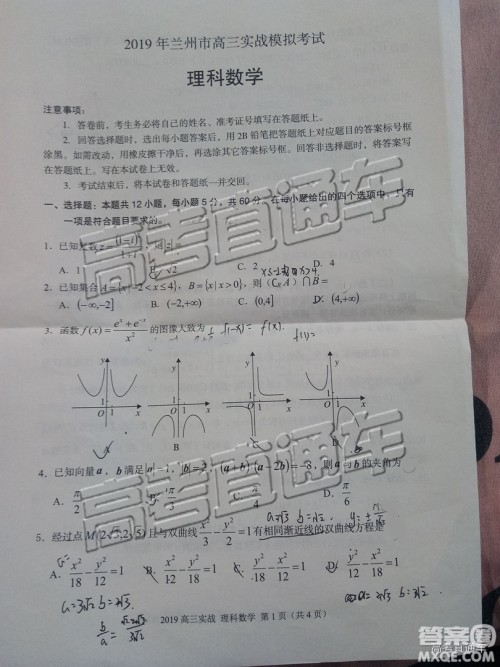 2019 年兰州市高三实战模拟考试
理科数学
注意事项:
1. 答卷前, 考生务必将自己的姓名、准考证号填写在答题纸上.
2. 回答选择题时, 选出每小题答案后, 用 2B 铅笔把答题纸上对应题目的答案标号框
涂黑。如需改动, 用橡皮擦干净后, 再选涂其它答案标号框。回答非选择题时, 将答案写
在答题纸上, 写在本试卷上无效。
3. 考试结束后, 将本试卷和答题纸一并交回。
一、选择题: 本题共 12 小题, 每小题 5 分, 共 60 分. 在每小题给出的四个选项中, 只有
一项是符合题目要求的.
1. 已知复数 z=
A. 1 B. √2 C. 2 D. 4
2. 已知集合 A={x|-2<x≤4}, B={x|x>0}, 则 (C_R A)∩B=
A. (-∞,-2] B. (-2,+∞) C. (0,4] D. (4,+∞)
3. 函数 f(x)=(e^x+e^-x)/x^2 的图像大致为 f(-x)= f(x). f(1)=
A B C D
4. 已知向量 a, b 满足 a=1, b=2, (a+b)(a-2b)=-8, 则 a 与 b 的夹角为
A. π/2 B. π/3 C. π/4 D. π/6
5. 经过点 M(2√3,2√5) 且与双曲线 x²/3-y²/2=1 有相同渐近线的双曲线方程是
A. x²/18-y²/12=1 B. x²/12-y²/18=1 C. y²/18-x²/12=1 D. y²/12-x²/18=1
a=3√2 b=2√3
2019 高三实战 理科数学 第 1 页（共 4 页）
高考直通车
高考直通车
答案圈
MXQE.COM